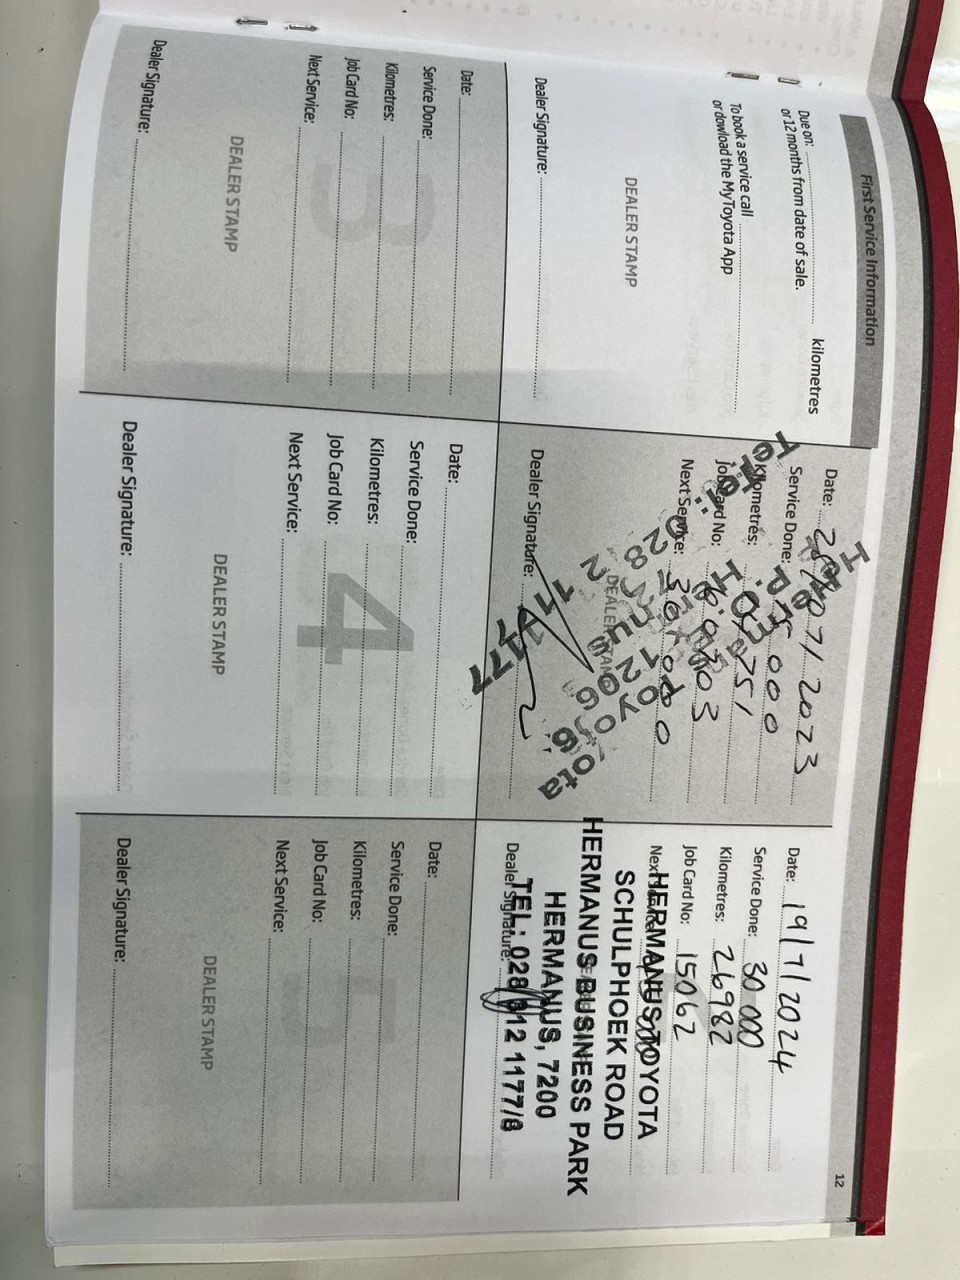 12
First Service Information
Due on: kilometres
or 12 months from date of sale.
To book a service call
or dowload the MyToyota App
DEALER STAMP
Dealer Signature:
Date: 2023
Service Done: 15 000
Kilometres: 751
Job Card No:
Next Service: 30 000
DEALER STAMP
Dealer Signature:
Date: 19/7/2024
Service Done: 30 000
Kilometres: 26982
Job Card No: 15062
HERMANUS TOYOTA
SCHULPHOEK ROAD
HERMANUS BUSINESS PARK
HERMANUS, 7200
TEL: 028 312 1177/8
Dealer Signature:
Date:
Service Done:
Kilometres:
Job Card No:
Next Service:
3
DEALER STAMP
Dealer Signature:
Date:
Service Done:
Kilometres:
Job Card No:
Next Service:
4
DEALER STAMP
Dealer Signature:
Date:
Service Done:
Kilometres:
Job Card No:
Next Service:
5
DEALER STAMP
Dealer Signature: